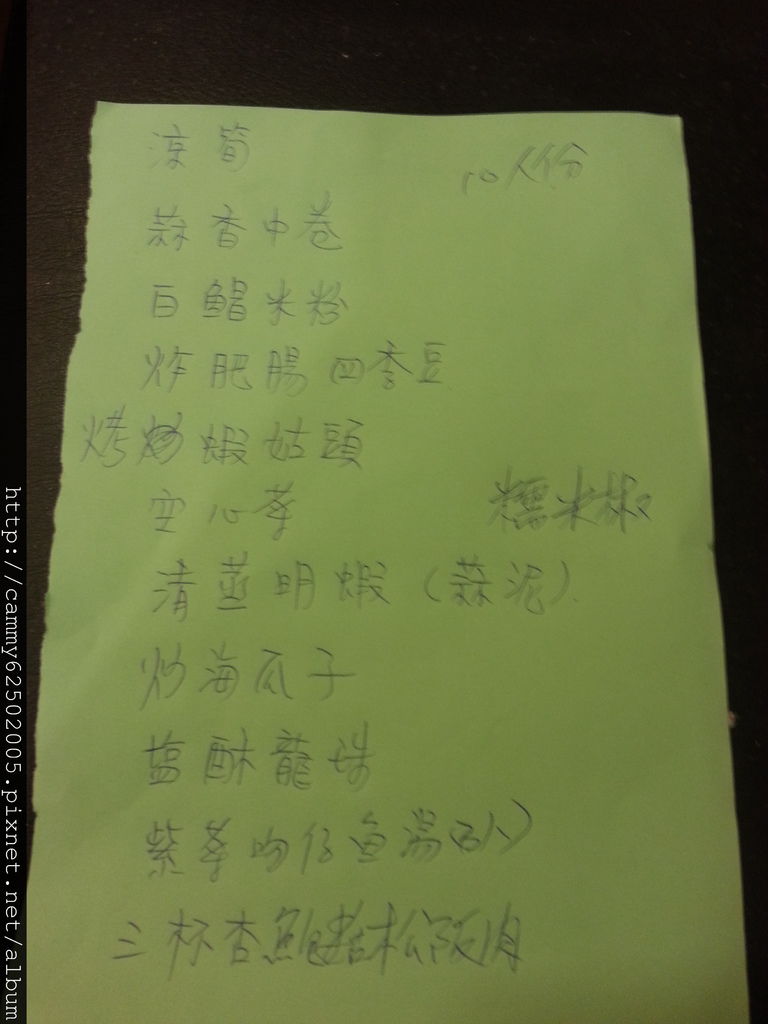 涼筍
10人份
蒜香中卷
白鯧米粉
炸肥腸四季豆
烤蝦姑頭
空心菜
糯米椒
清蒸明蝦(蒜泥)
炒海瓜子
塩酥龍珠
紫菜吻仔魚湯(小)
三杯杏鮑菇松阪肉
http://cammy62502005.pixnet.net/album